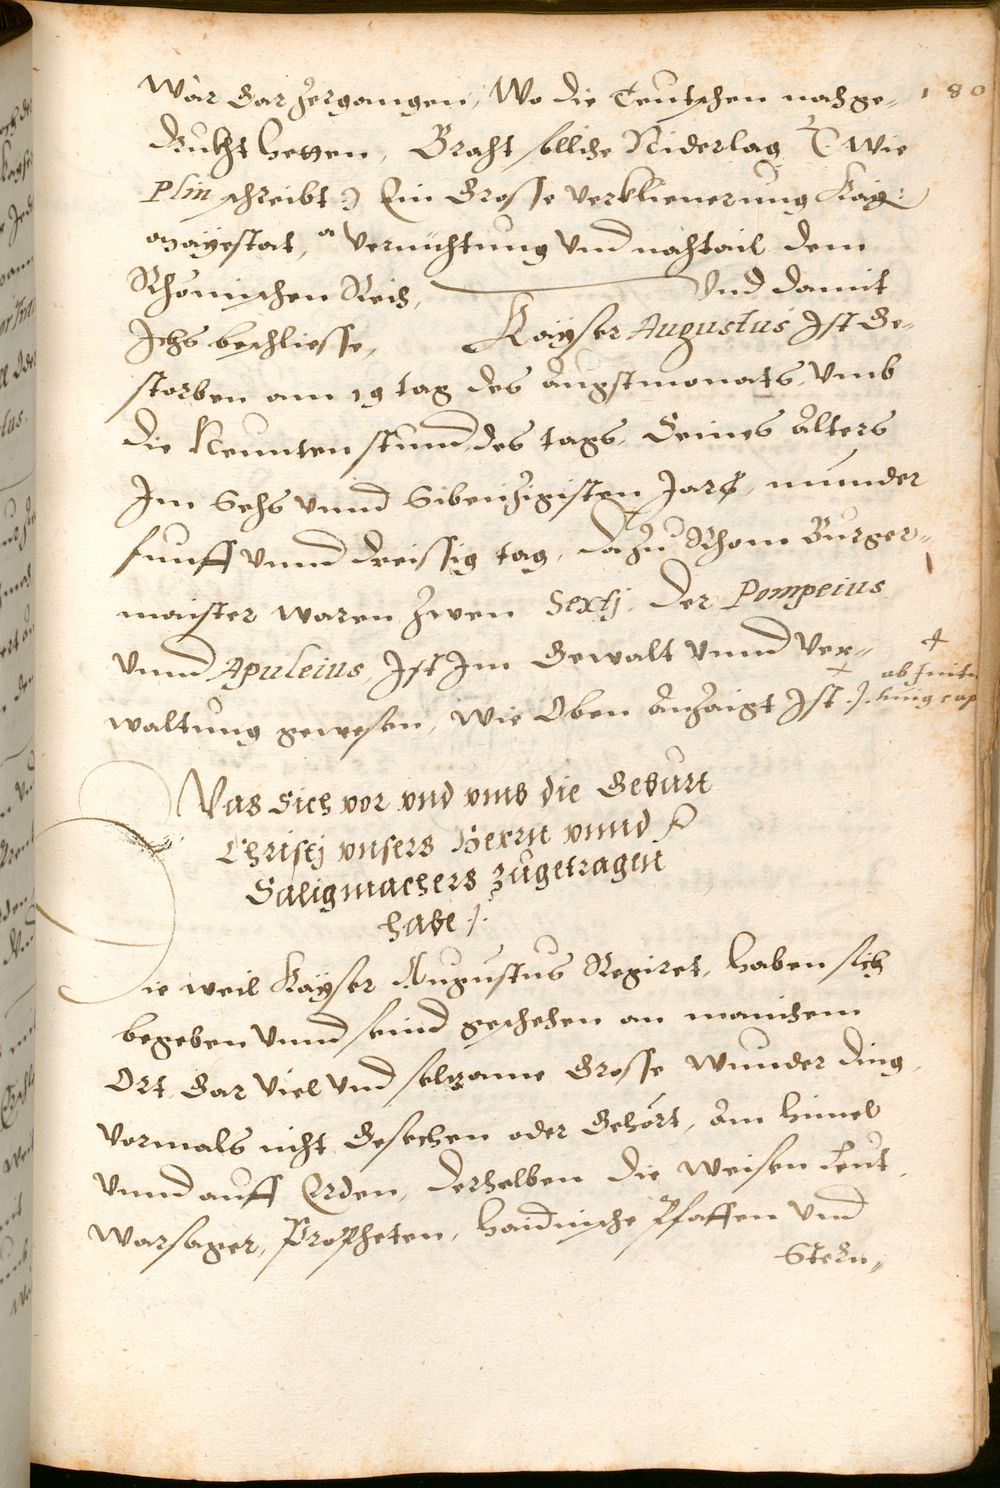 180
Wär Gar zergangen, Wo die Teutschen nachge-
druckht hetten, Bracht solliche Niderlag (: Wie
Plin schreibt :) Ein Grosse verkhienerung Kay:
Mayestat, vernichtung Vnd nachtail dem
Rhömischen Reich, Vnd damit
Ichs beschliesse, Kayser Augustus Ist Ge-
storben am 19 tag des Augstmonats, Vmb
die Neunten stund des tags, Seines Alters
Im Sechs vnnd Sibenzigisten Jars, minder
funff vnnd dreissig tag, da zu Rhom Burger-
maister waren zwen Sextj, der Pompeius
vnnd Apuleius, Ist Im Gewalt vnnd Ver-
waltung gewesen, Wie Oben Anzaigt Ist ./.
Was Sich vor vnd vmb die Geburt
Christj vnsers Herrn vnnd
Saligmachers zugetragen
habe ./.
Die weil Kayser Augustus Regiret, haben sich
begeben vnnd seind geschehen an manichem
Ort Gar viel vnd selzame Grosse wunder ding,
vormals nicht Gesechen oder Gehört, Am himel
vnnd auff Erden, derhalben die weisen Leut,
Warsager, Propheten, haidnische Pfaffen vnd
Stern-